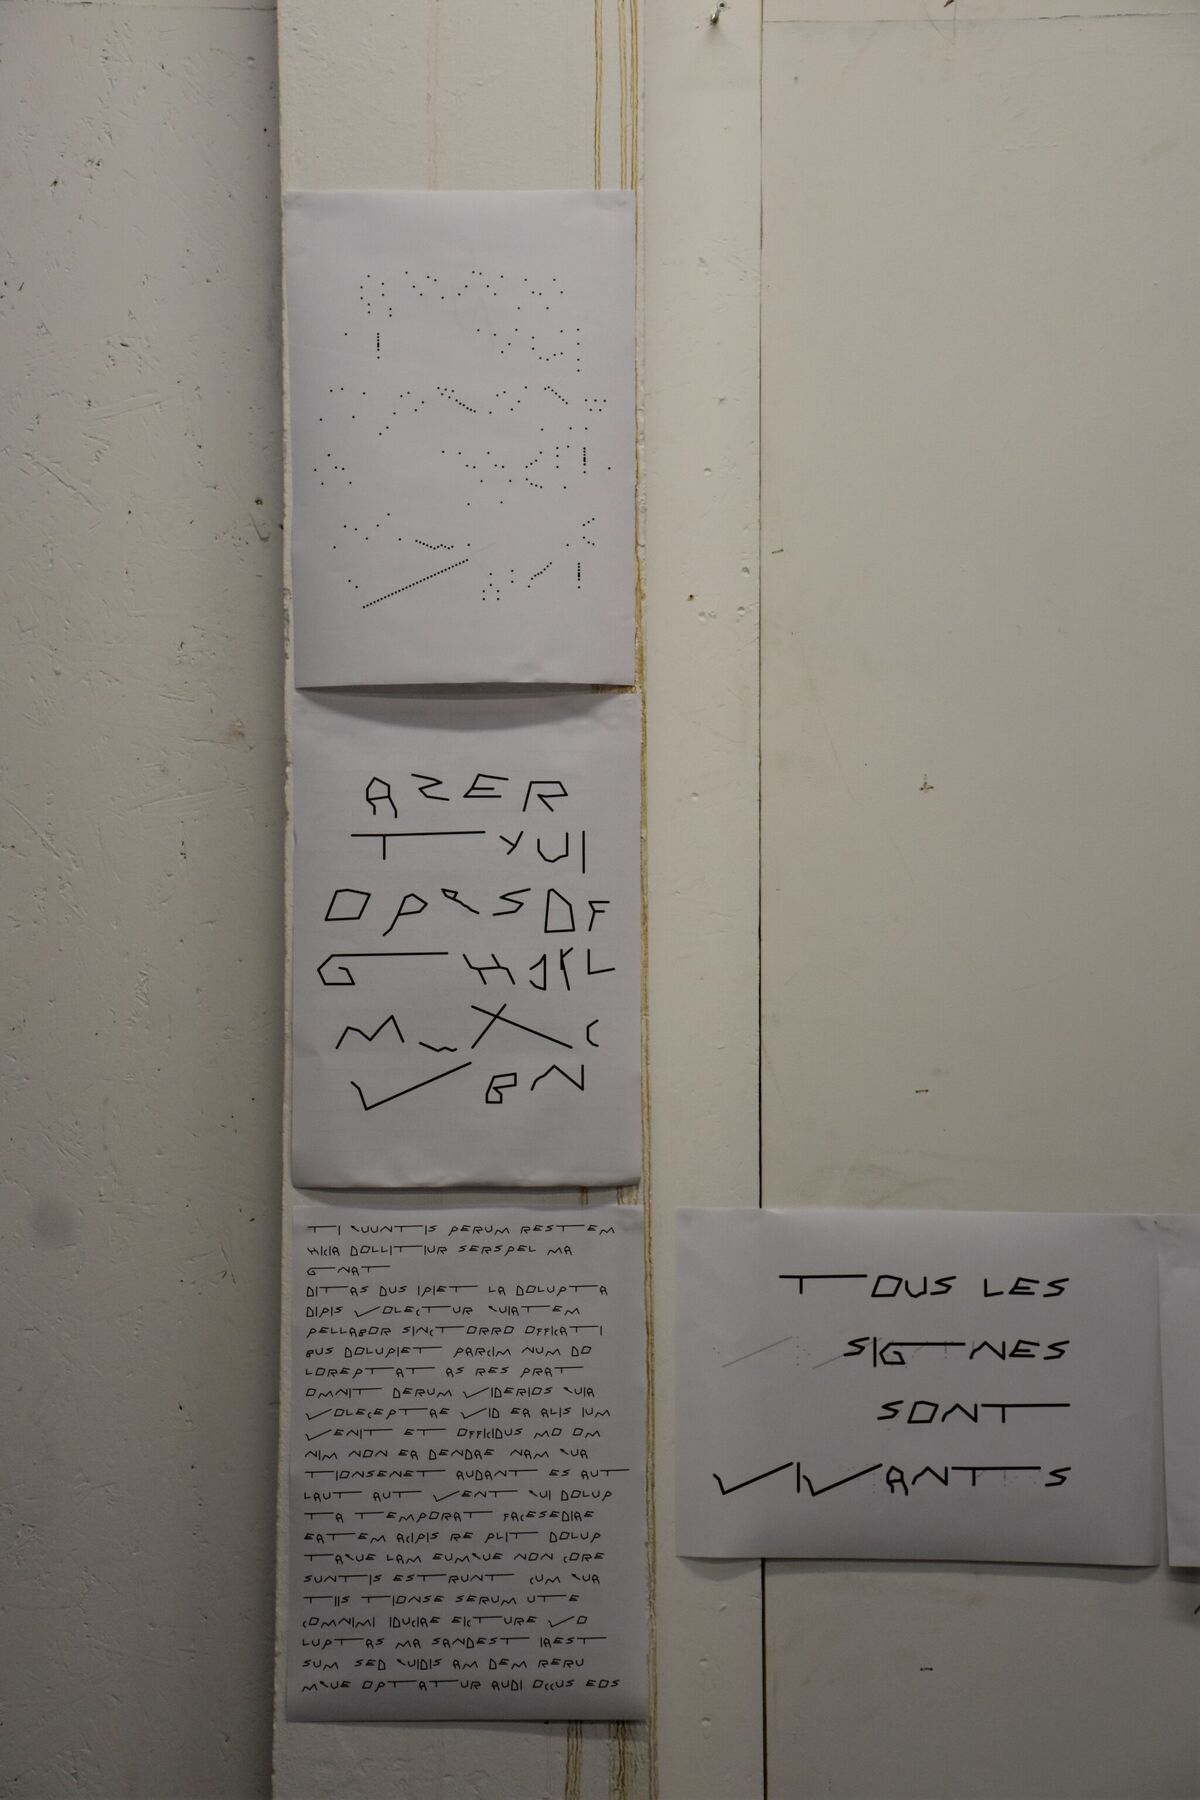 AZER
TYUI
OPQSDF
GHJKL
MWXC
VBN
TI QUUNTIS PERUM RESTEM
HICIA DOLLITIUR SERSPEL MA
GNAT
DITAS DUS IPIET LA DOLUPTA
DIPIS VOLECTUR QUIATEM
PELLABOR SINCTORRO OFFICATI
BUS DOLUPIET PARCIM NUM DO
LOREPTAT AS RES PRAT
OMNIT DERUM VIDERIOS QUIA
VOLECEPTAE VID EA ALIS IUM
VENIT ET OFFICIDUS MO OM
NIM NON EA DENDAE NAM QUA
TIONSENET AUDANT ES AUT
LAUT AUT VENT QUI DOLUP
TA TEMPORAT FACESEDIAE
EATEM ACIPIS RE PLIT DOLUP
TAQUE LAM EUMQUE NON CORE
SUNTIS ESTRUNT CUM QUA
TIIS TIONSE SERUM UTE
COMNIMI IDUCIAE EICTURE VO
LUPTAS MA SANDEST IAEST
SUM SED QUIDIS AM DEM RERU
MQUE OPTATUR AUDI OCCUS EOS
TOUS LES
SIGNES
SONT
VIVANTS